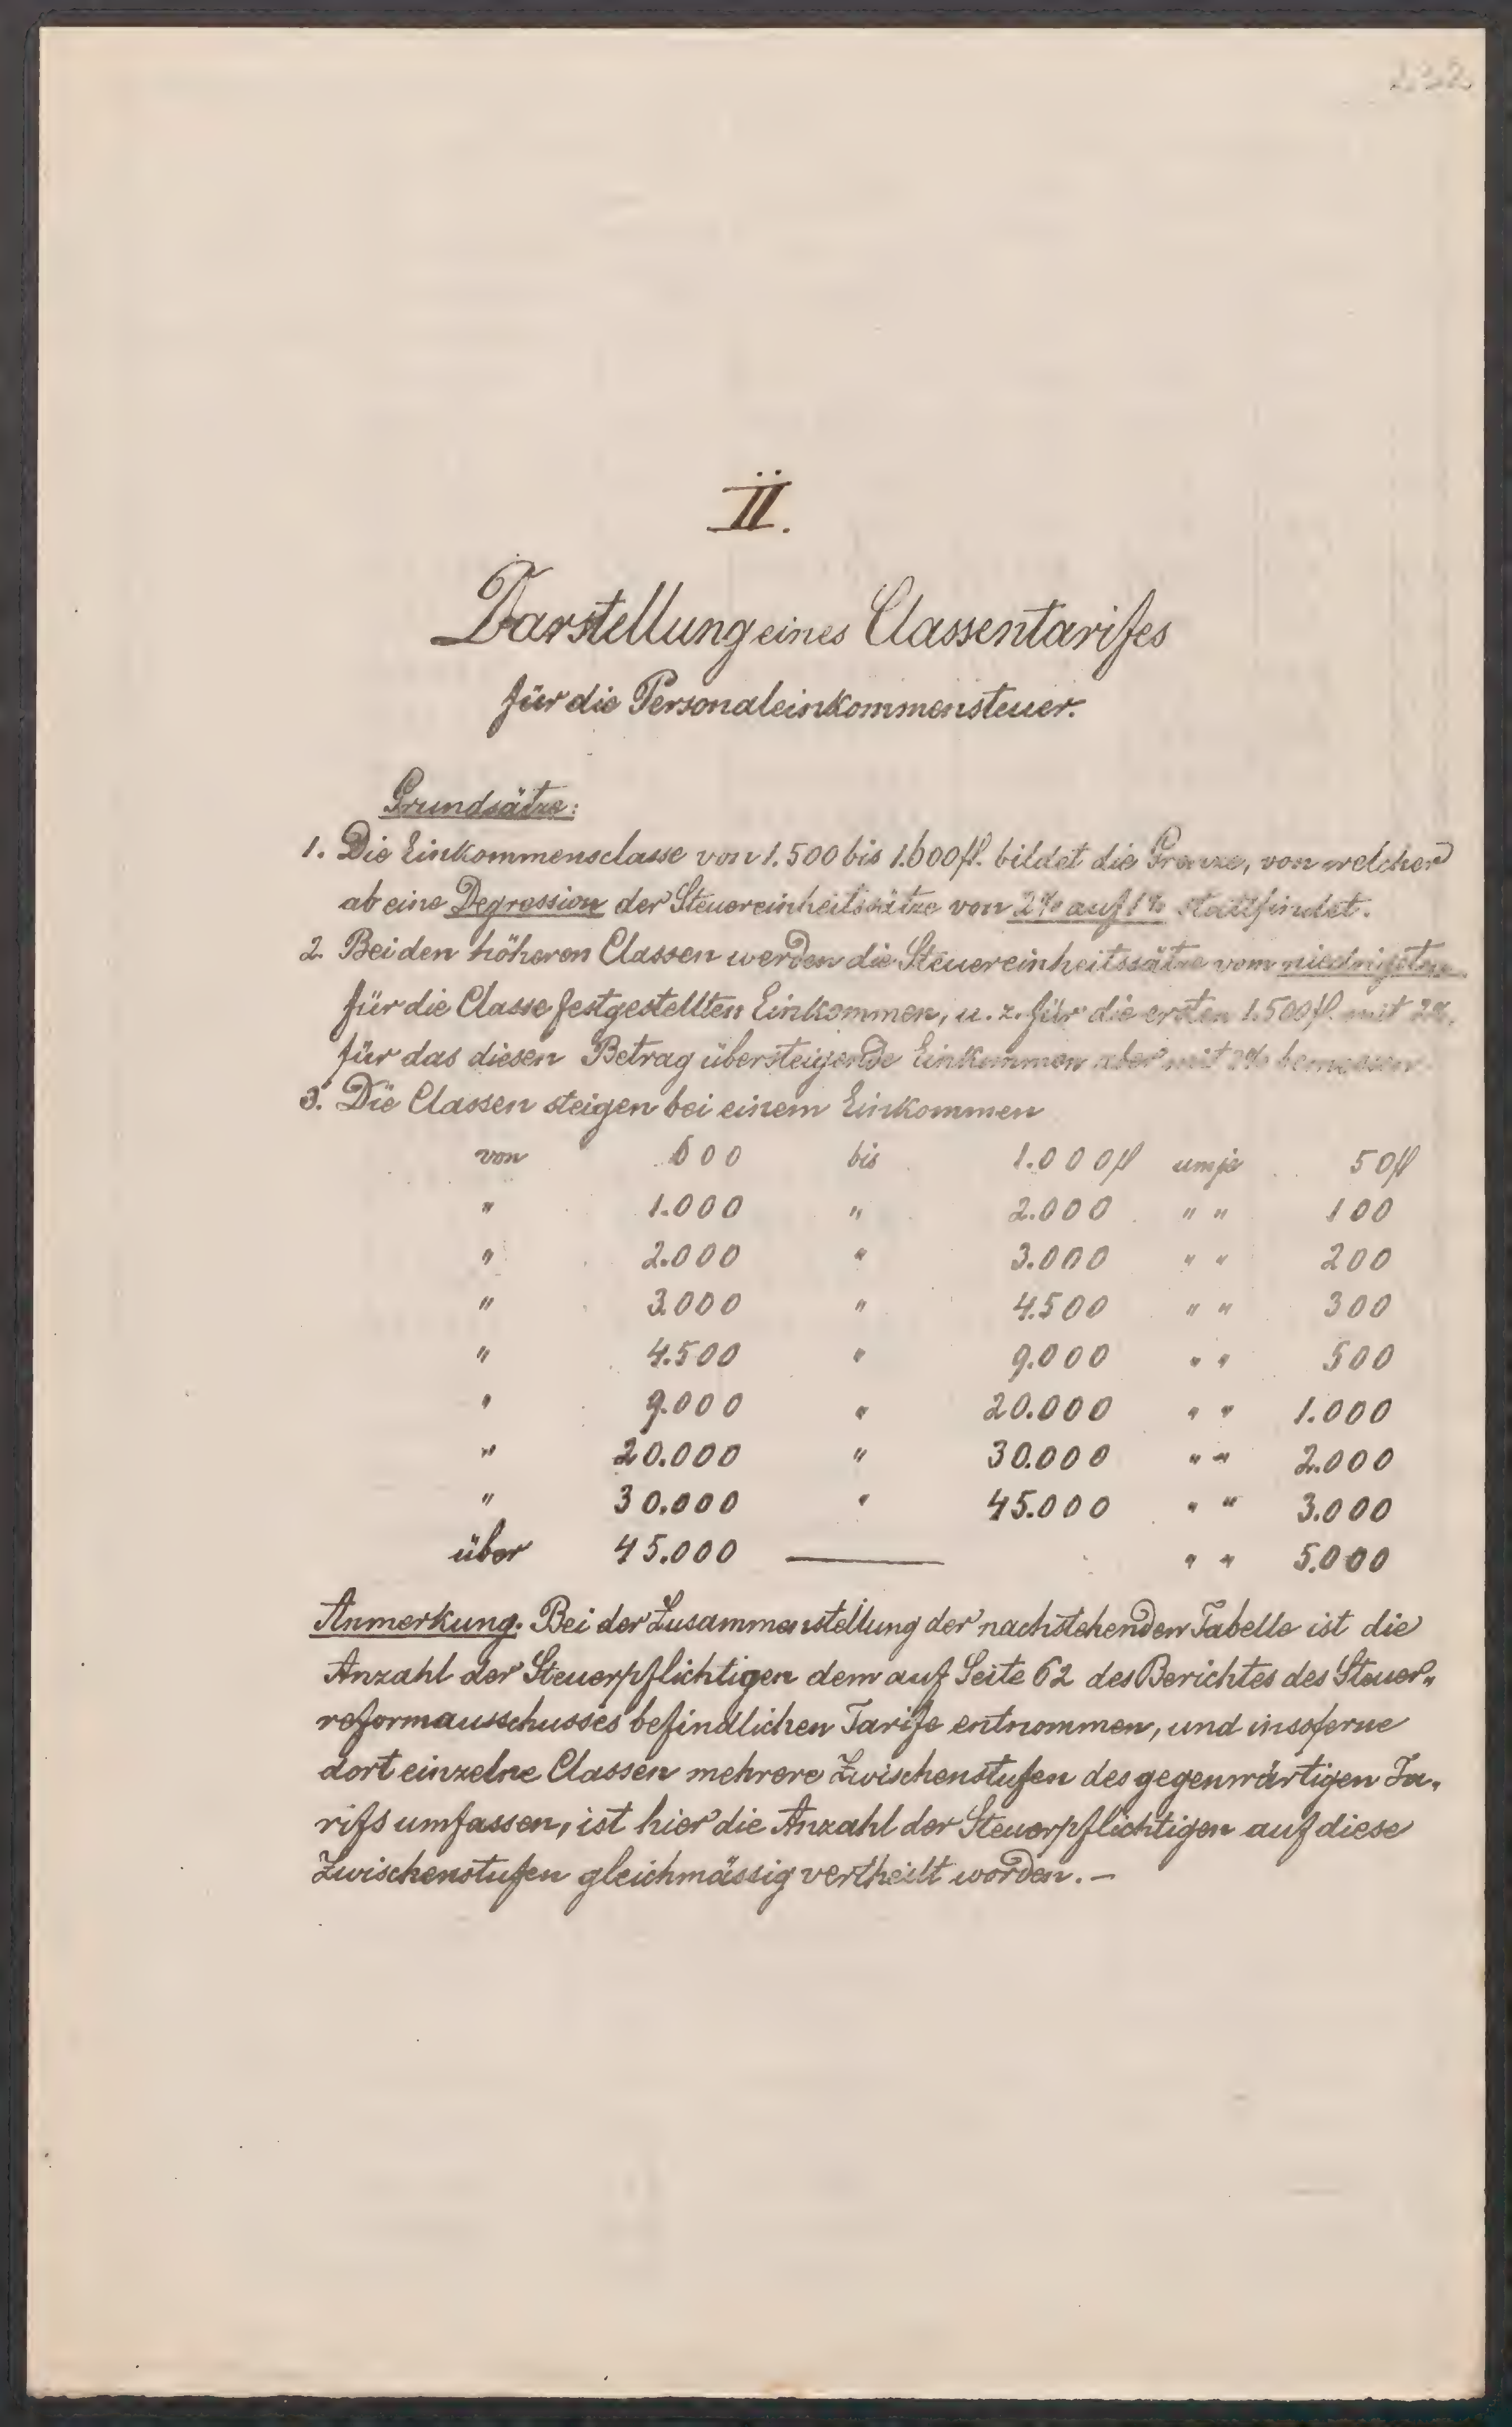 232
II.
Darstellung eines Classentarifes
für die Personaleinkommensteuer.
Grundsätze:
1. Die Einkommensclasse von 1.500 bis 1.600 fl. bildet die Grenze, von welcher
ab eine Degression der Steuereinheitssätze von 2% auf 1% stattfindet.
2. Bei den höheren Classen werden die Steuereinheitssätze vom niedrigsten
für die Classe festgestellten Einkommen, u. z. für die ersten 1.500 fl. mit 2%,
für das diesen Betrag übersteigende Einkommen aber mit % bemessen.
3. Die Classen steigen bei einem Einkommen
von 600 bis 1.000 fl um je 50 fl
" 1.000 " 2.000 " " 100
" 2.000 " 3.000 " " 200
" 3.000 " 4.500 " " 300
" 4.500 " 9.000 " " 500
" 9.000 " 20.000 " " 1.000
" 20.000 " 30.000 " " 2.000
" 30.000 " 45.000 " " 3.000
über 45.000 — " " 5.000
Anmerkung. Bei der Zusammenstellung der nachstehenden Tabelle ist die
Anzahl der Steuerpflichtigen dem auf Seite 62 des Berichtes des Steuer„
reformausschusses befindlichen Tarife entnommen, und insoferne
dort einzelne Classen mehrere Zwischenstufen des gegenwärtigen Ta„
rifs umfassen, ist hier die Anzahl der Steuerpflichtigen auf diese
Zwischenstufen gleichmässig vertheilt worden. —